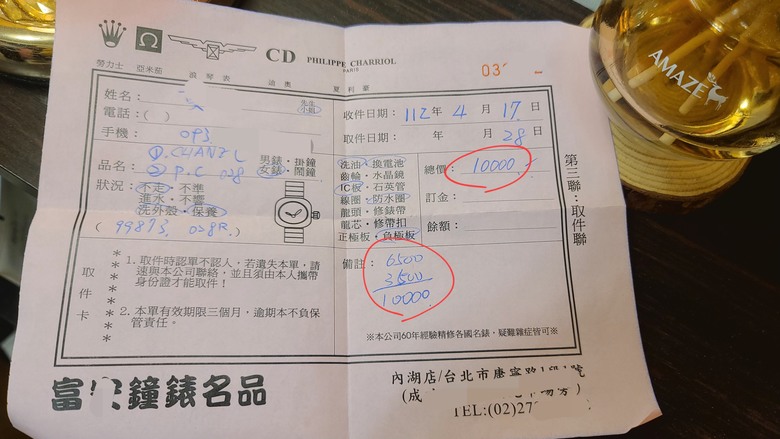 CD PHILIPPE CHARRIOL
PARIS
勞力士 亞米茄 浪琴表 迪奧 夏利豪
03
AMAZE
姓名:
先生
小姐
電話:( )
手機: 093
收件日期: 112年 4月 17日
取件日期: 年 月 28日
品名: ①.CHANEL
②.P.C 028
男錶・掛鐘
女錶・鬧鐘
狀況: 不走・不準
進水・不響
洗外殼・保養
(99873. 028R.)
洗油・換電池
齒輪・水晶鏡
IC板・石英管
線圈・防水圈
龍頭・修錶帶
龍芯・修帶扣
正極板・負極板
總價: 10000.
訂金:
餘額:
第三聯:取件聯
取件卡
1. 取件時認單不認人,若遺失本單,請
速與本公司聯絡,並且須由本人攜帶
身份證才能取件!
2. 本單有效期限三個月,逾期本不負保
管責任。
備註: 6500
3500
10000
※本公司60年經驗精修各國名錶,疑難雜症皆可※
富 鐘錶名品
內湖店/台北市康寧路
(成
TEL:(02)27